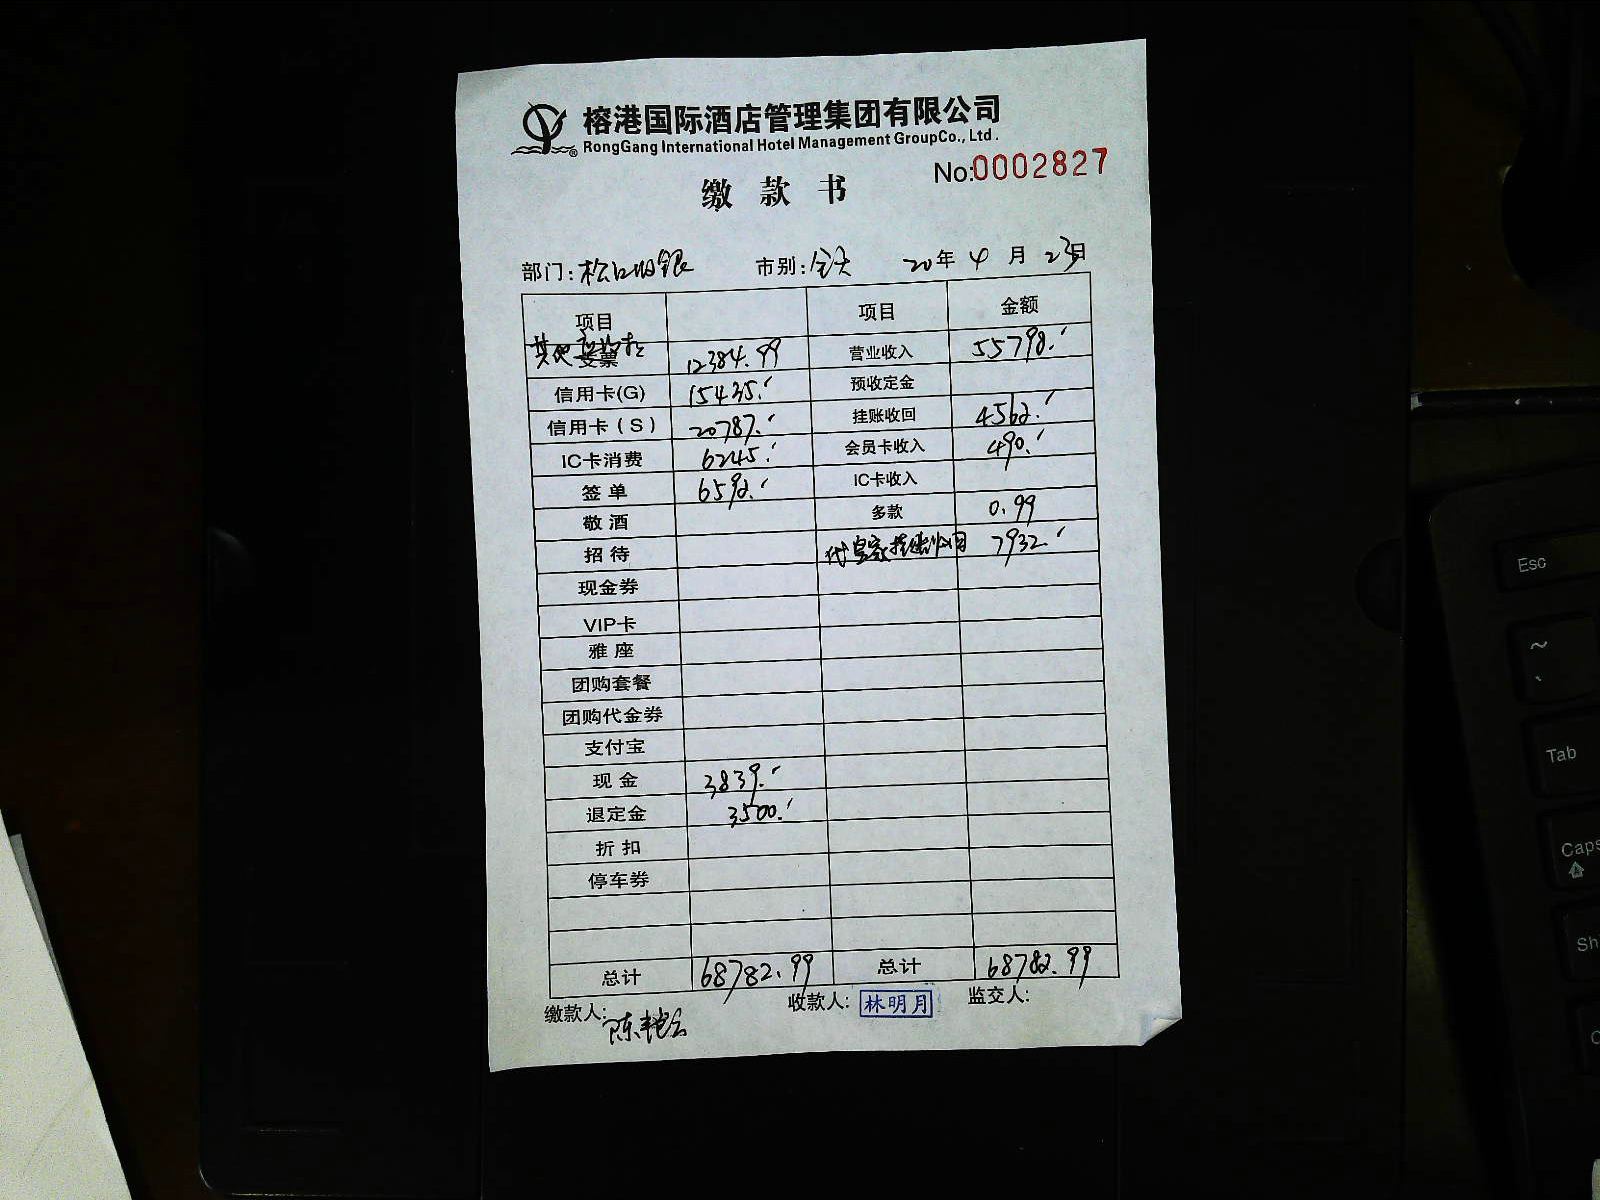 榕港国际酒店管理集团有限公司
RongGang International Hotel Management GroupCo., Ltd.
No:0002827
缴款书
部门: 市别:全天 20年4月23日
项目 项目 金额
支票 12384.99 营业收入 55798.-
信用卡(G) 15435.- 预收定金
信用卡(S) 20787.- 挂账收回 4562.-
IC卡消费 6245.- 会员卡收入 490.-
签单 6592.- IC卡收入
敬酒 多款 0.99
招待 7932.-
现金券
VIP卡
雅座
团购套餐
团购代金券
支付宝
现金 3839.-
退定金 3500.-
折扣
停车券
总计 68782.99 总计 68782.99
缴款人: 收款人: 林明月 监交人:
Esc
~
Tab
Caps
Sh